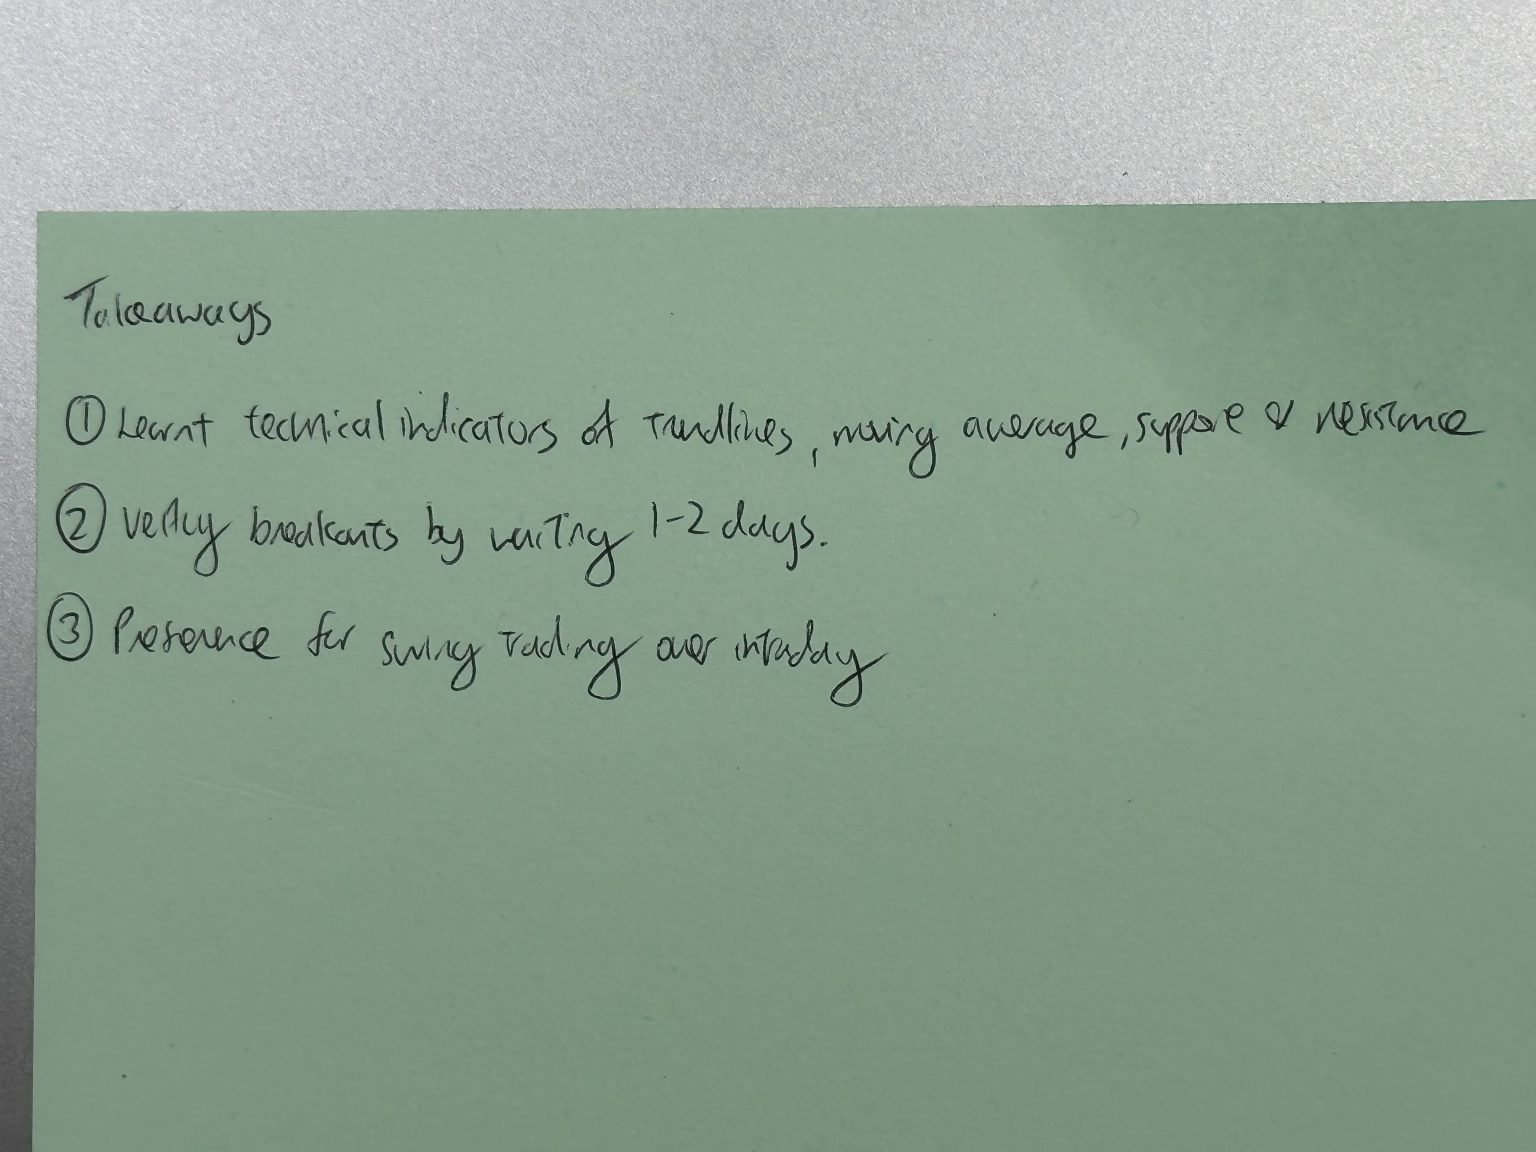 Takeaways
① Learnt technical indicators of trendlines, moving average, support & resistance
② Verify breakouts by waiting 1-2 days.
③ Preference for swing trading over intraday